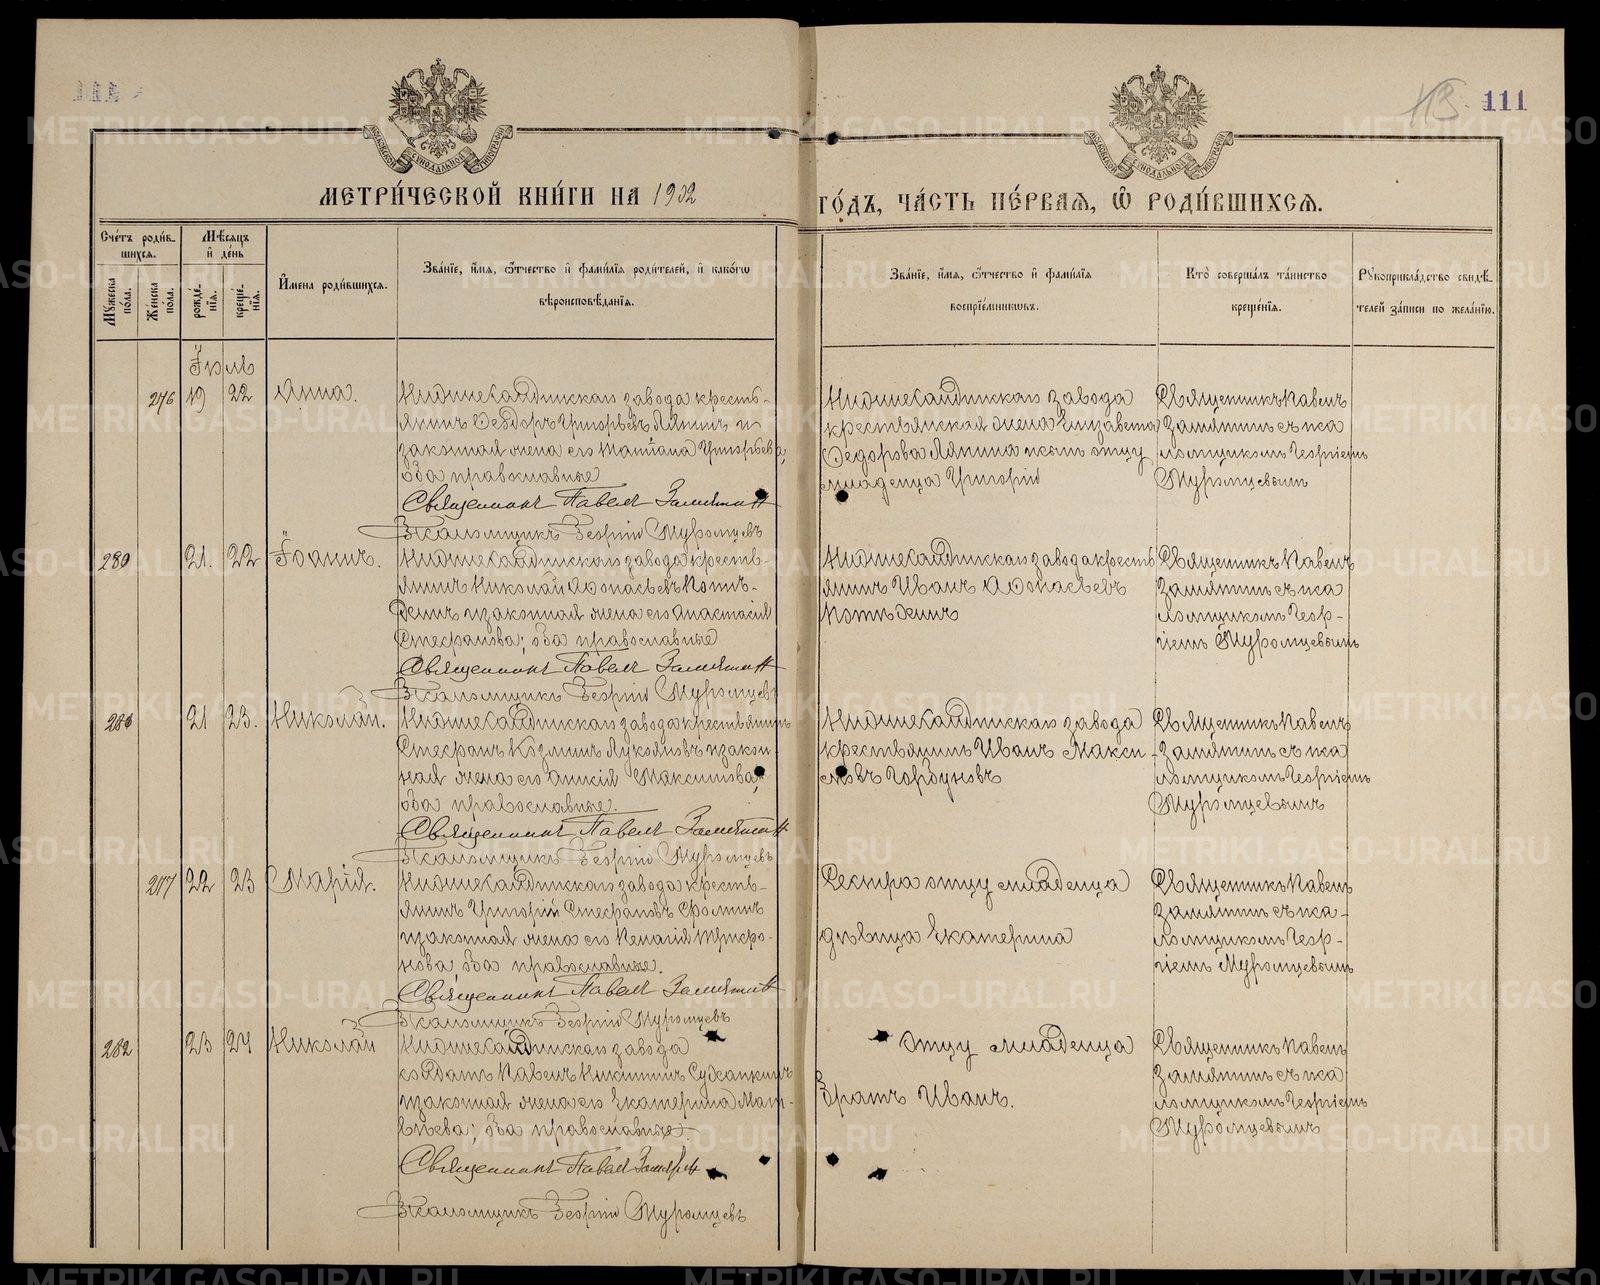 111
113.
МОСКОВСКОЙ СѴНОДАЛЬНОЙ ТИПОГРАФІИ
МЕТРИ́ЧЕСКОЙ КНИ́ГИ НА 1902
ГО́ДЪ, ЧА́СТЬ ПЕ́РВАЯ, Ѽ РОДИ́ВШИХСЯ.
Сче́тъ роди́в-
шихся.
Мꙋ́жеска по́ла.
Же́нска по́ла.
Мѣ́сяцъ и҆ де́нь
рожде́-нїя.
креще́-нїя.
И҆мена роди́вшихся.
Зва́нїе, и҆́мя, ѻ҆́тчество и҆ фами́лїя роди́телей, и҆ како́гѡ
вѣроисповѣ́данїя.
Зва́нїе, и҆́мя, ѻ҆́тчество и҆ фами́лїя
воспрїе́мникѡвъ.
Кто̀ соверша́лъ та́инство
креще́нїя.
Рꙋкоприкла́дство свидѣ́-
телей за́писи по жела́нїю.
Іюль
276 19 22 Анна.
Нижнесалдинскаго завода кресть-
янинъ Ѳеодоръ Григорьевъ Ляпинъ и
законная жена его Татіана Григорьева,
оба православные
Священникъ Павелъ Замятинъ
Псаломщикъ Георгій Муромцевъ
Нижнесалдинскаго завода
крестьянская жена Елизавета
Ѳедорова Ляпина и сынъ отцу
младенца Григорій
Священникъ Павелъ
Замятинъ съ пса
ломщикомъ Георгіемъ
Муромцевымъ
280 21. 22 Іоаннъ.
Нижнесалдинскаго завода кресть-
янинъ Николай Аѳонасьевъ Коть-
денъ и законная жена его Анастасія
Стефанова; оба православные
Священникъ Павелъ Замятинъ
Псаломщикъ Георгій Муромцевъ
Нижнесалдинскаго завода кресть
янинъ Иванъ Аѳонасьевъ
Священникъ Павелъ
Замятинъ съ пса
ломщикомъ Геор-
гіемъ Муромцевымъ
21 23. Николай.
Нижнесалдинскаго завода крестьянинъ
Стефанъ Козминъ Лукояновъ и закон-
ная жена его Максимова;
оба православные.
Священникъ Павелъ Замятинъ
Псаломщикъ Георгій Муромцевъ
Нижнесалдинскаго завода
крестьянинъ Иванъ Макси-
мовъ Горбуновъ
Священникъ Павелъ
Замятинъ съ пса
ломщикомъ Георгіемъ
Муромцевымъ
277 22 23 Марія.
Нижнесалдинскаго завода кресть-
янинъ Григорій Стефановъ Фоминъ
и законная жена его Пелагія Триφо-
нова, оба православные.
Священникъ Павелъ Замятинъ
Псаломщикъ Георгій Муромцевъ
Сестра отцу младенца
дѣвица Екатерина
Священникъ Павелъ
Замятинъ съ пса-
ломщикомъ Геор-
гіемъ Муромцевымъ
282 23 24 Николай
Нижнесалдинскаго завода
солдатъ Павелъ Никитинъ Суханкинъ
и законная жена его Екатерина Мат-
вѣева; оба православные.
Священникъ Павелъ Замятинъ
Псаломщикъ Георгій Муромцевъ
Отцу младенца
братъ Иванъ.
Священникъ Павелъ
Замятинъ съ пса
ломщикомъ Георгіемъ
Муромцевымъ
METRIKI.GASO-URAL.RU